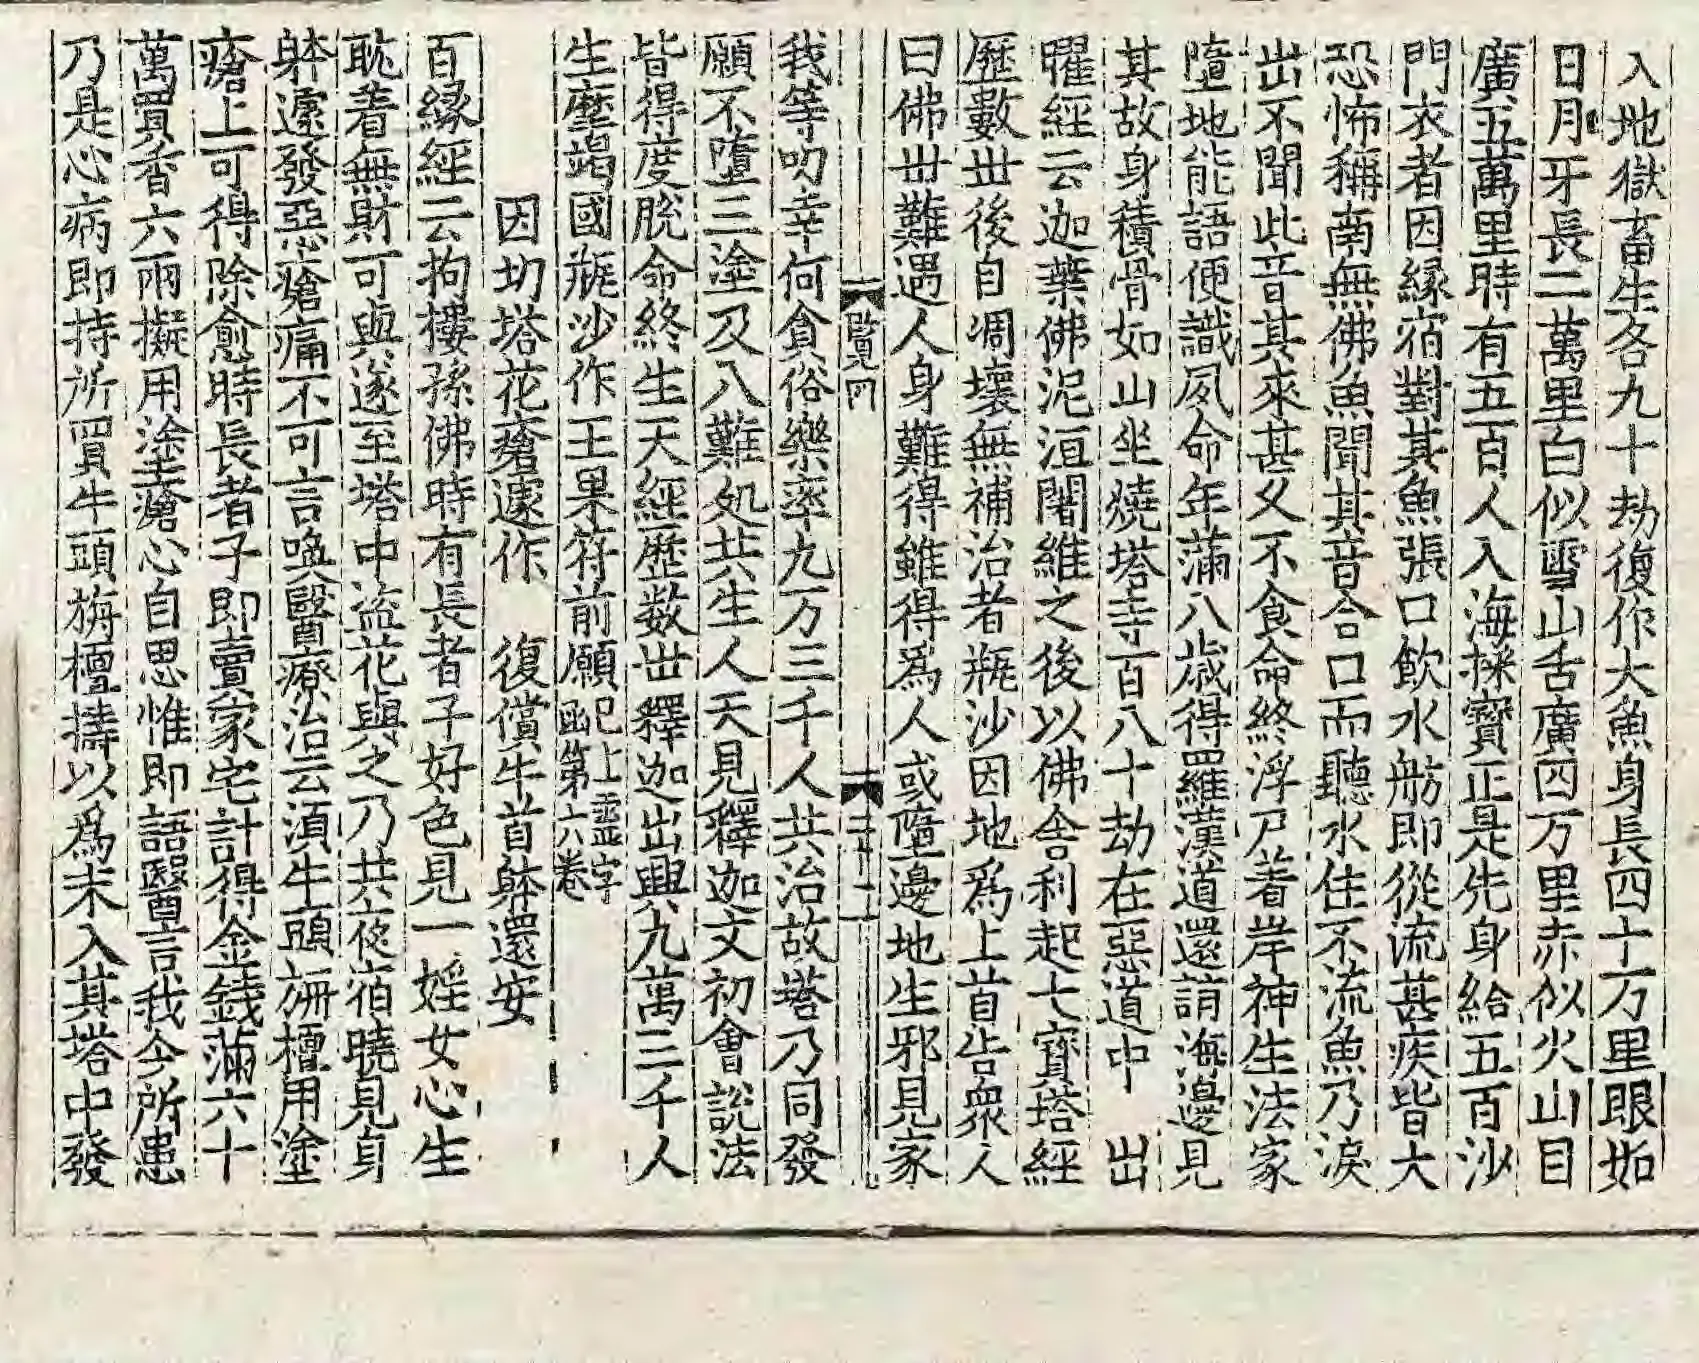 入地獄畜生各九十劫復作大魚身長四十万里眼如
日月牙長二萬里白似雪山舌廣四万里赤似火山目
廣五萬里時有五百人入海採寶正是先身給五百沙
門衣者因縁宿對其魚張口飲水舫即從流甚疾皆大
恐怖稱南無佛魚聞其音合口而聽水住不流魚乃淚
出不聞此音其來甚乆不食命終浮尸着岸神生法家
墮地能語便識夙命年滿八歲得羅漢道還詣海邊見
其故身積骨如山坐燒塔寺百八十劫在惡道中 出
曜經云迦葉佛泥洹闍維之後以佛舍利起七寶塔經
歷數丗後自凋壞無補治者瓶沙因地爲上首告衆人
曰佛丗難遇人身難得雖得爲人或墮邊地生邪見家
覽四 二十二
我等叨幸何貪俗樂率九万三千人共治故塔乃同發
願不墮三塗及八難処共生人天見釋迦文初會說法
皆得度脫命終生天經歷数丗釋迦出興九萬三千人
生摩竭國瓶沙作王果符前願 已上靈字函第六卷
因切塔花瘡遽作 復償牛首躰還安
百縁經云拘摟孫佛時有長者子好色見一婬女心生
耽着無財可與遂至塔中盜花與之乃共夜宿曉見身
躰遽發惡瘡痛不可言喚醫療治云湏牛頭栴檀用塗
瘡上可得除愈時長者子即賣家宅計得金錢滿六十
萬買香六兩擬用塗瘡心自思惟即語醫言我今所患
乃是心病即持所買牛頭栴檀擣以爲末入其塔中發